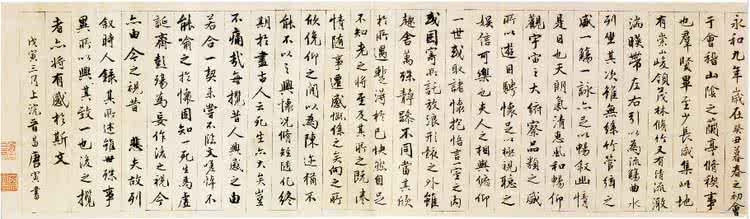 永和九年歲在癸丑暮春之初會
于會稽山陰之蘭亭脩稧事
也群賢畢至少長咸集此地
有崇山峻領茂林脩竹又有清流激
湍暎帶左右引以為流觴曲水
列坐其次雖無絲竹管絃之
盛一觴一詠亦足以暢敘幽情
是日也天朗氣清惠風和暢仰
觀宇宙之大俯察品類之盛
所以遊目騁懷足以極視聽之
娛信可樂也夫人之相與俯仰
一世或取諸懷抱悟言一室之內
或因寄所託放浪形骸之外雖
趣舍萬殊靜躁不同當其欣
於所遇暫得於己快然自足
不知老之將至及其所之既惓
情隨事遷感慨係之矣向之所
欣俛仰之間以為陳迹猶不
能不以之興懷況脩短隨化終
期於盡古人云死生亦大矣豈
不痛哉每攬昔人興感之由
若合一契未嘗不臨文嗟悼不
能喻之於懷固知一死生為虛
誕齊彭殤為妄作後之視今
亦由今之視昔 悲夫故列
敘時人錄其所述雖世殊事
異所以興其致一也後之攬
者亦將有感於斯文
戊寅三月上浣晉昌唐寅書